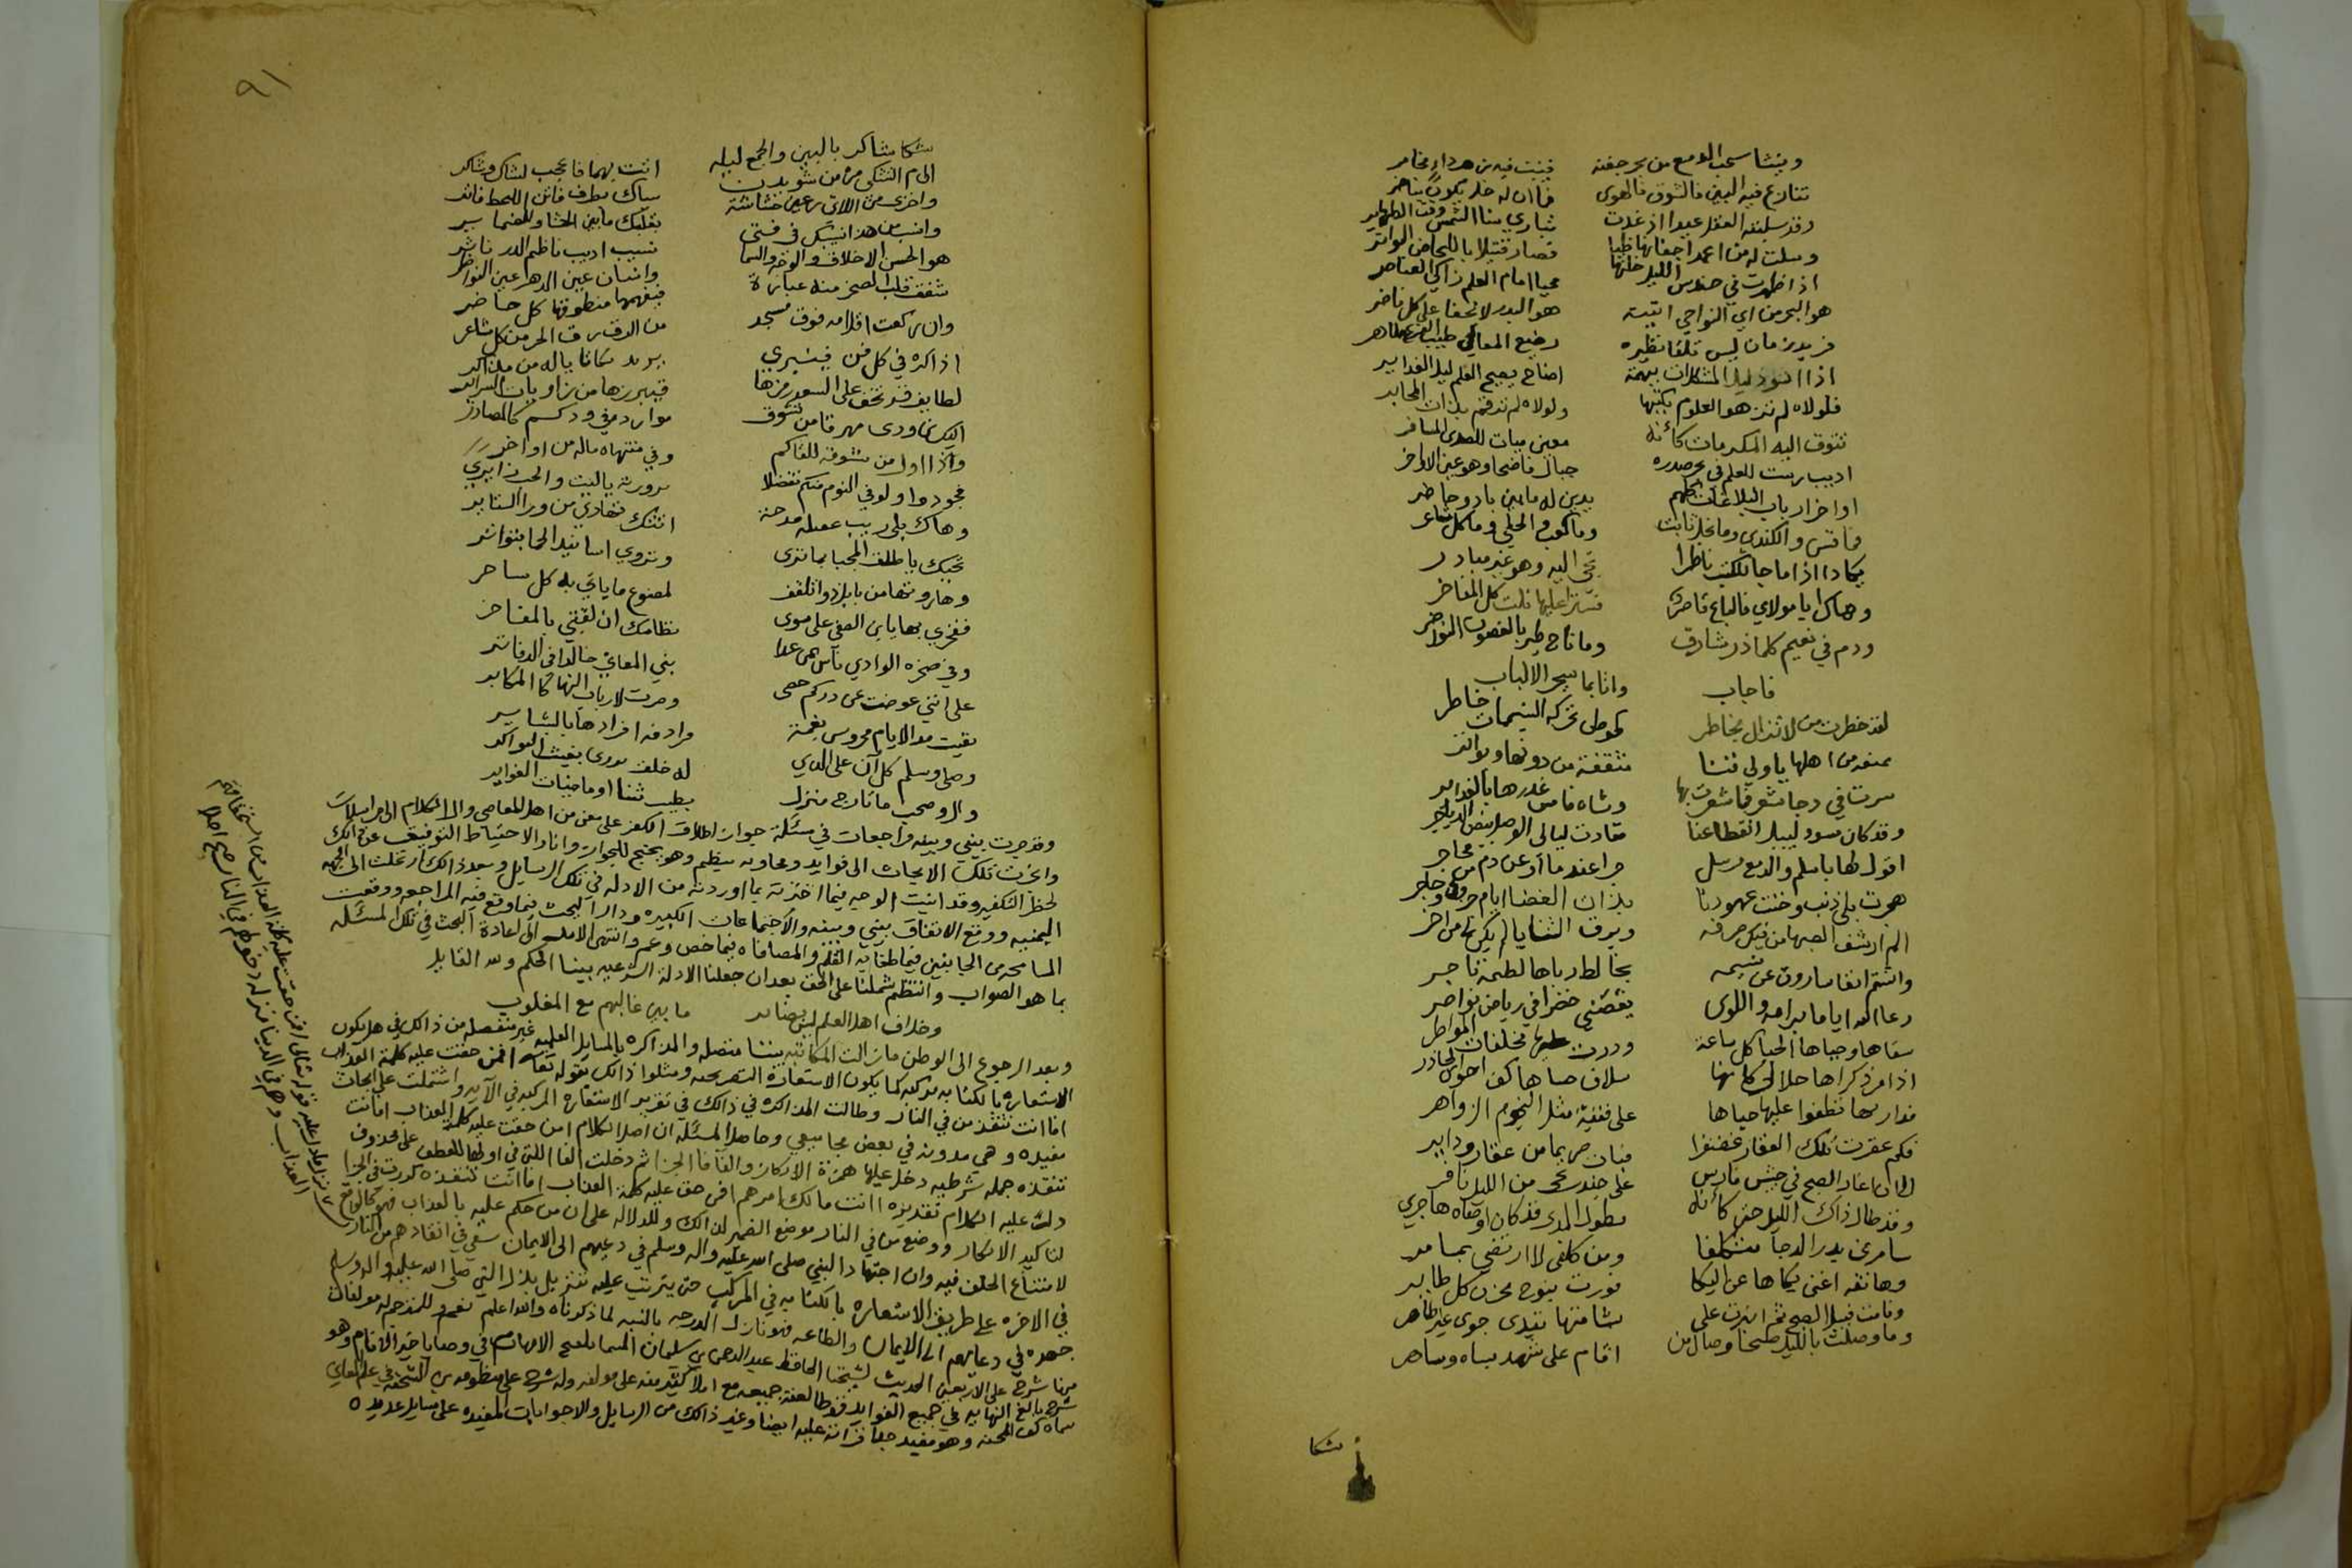 وينشا سحب الدمع من بحر جفنه فينبت فيه من هداء مخامر
تنازع فيه البين فالشوق فالهوى فما ان له خل يكون يناصر
وقد سلبته العقل عبدا اذ غدت تباري سنا الشمس وقت الظهاير
وسلت له من اغمد اجفانها ظبا فصار قتيلا باللحاض البواتر
اذا ظهرت في حندس الليل خلتها محيا امام العلم زاكي العناصر
هو البحر من اي النواحي اتيته هو البدر لا يخفا على كل ناضر
فريد زمان ليس تلقا نظيره رضيع المعالي طيب
اذا اسود ليل المشكلات بهمة اضاح بصبح العلم ليل الغدايا
فلولاه لم تزهو العلوم بكتبها ولولاه لم ترقم بذات المحابر
تتوق اليه المكرمات كأنه معين مبات للصدى المسافر
اديب ربيت للعلم في بحر صدره جبال فاضحا وهو عين الاواخر
اواخر ارباب البلاغات كلهم يدين له ما بين باد وحاظر
فما قس والكندي وما نجل ثابت وما كعب والحلي وما كل شاعر
يكاد اذا ما جا بالكتب ناظرا تجي اليه وهو غير مبادر
وهاك ايا مولاي فالباع قاصر فستر عليها نلت كل المفاخر
ودم في نعيم كلما ذر شارق وما ناح طير بالغصون النواضر
فاجاب واتا بما سحر الالباب
لقد خطرت من لا تزال بخاطر كموطى تحركه النسيمات خاطر
ممنعه من اهلها يا ولي فتنا مثقفة من دونها وبواتر
سرت في دجا شعر فا شعرت بها وشاه فا من غدرها بالغداير
وقد كان مسود لييل القطا عنا فعادت ليالي الوصل بيض الدياجر
اقول لها يا سلم والدمع مرسل جرا عند ما او عن دم من محاجر
هجرت بلا ذنب وخنت عهودنا بذات الغضا ايام حزوى وحاجر
الم ارشف الصهبا من قبل حرفه وبرق الثنايا لم يكن من اخر
واشتم انفا ساروت عن نسيمه بخالط رياها لطيمة تاجر
رعا الله اياما برامه واللوى بغصني خضرا في رياض نواضر
سقاها وحياها الحيا كل ساعة ودرت عليها مخلفات المواطر
اذا مر ذكراها حلا لي كانها سلاف حساها كف احوى الجاذر
مدار بها نطفوا عليها حباها على فتية مثل النجوم الزواهر
فكم عقرت تلك العقار غضنفرا فبات صريعا من عقار ودابر
الى ان اغار الصبح في جيش فارس على جندب نحى من الليل نافر
وقد طال ذاك الليل حتى كأنه بطول المدى قد كان اوصاه هاجري
سامرني بدر الدجا متكلفا ومن كلفي لا ارتضي بمسامر
وهاتفه اغنى بكاها عن البكا نورت بنوح محزن كل طاير
وقامت قبيل الصبح تم انبرت على بشا منها تبدى جوى غير ظاهر
وما وصلت بالليل صبحا وصال من اقام على شهد بساه وساهر
شكا
٩١
شكا شاكر بالبين والجمع ليله اتت بهما فاعجب لشاك وشاكر
الى م التشكي من من شويدن سباك بطرف فاتن اللحظ فاتر
واخرى من اللاتي رعين حشاشة بقلبك ما بين الحشا والضماير
وانسب من هذا نسيبك في فتى نسيب اديب ناظم الدر ناثر
هو الحسن الاخلاق والوجه والسما وانسان عين الدهر عين النواظر
شقق قلب الصخر منه عبارة فيفهمها منطوقها كل حاضر
وان ركعت اقلامه فوق مسجد من الرق رق الحر من كل شاعر
اذاكره في كل فن فينبري يريد سكاتا ياله من مذاكر
لطايف قد تخفى على السعد رمزها فيبرزها من زاويات السراير
اليك نما ودى مهرقا من تشوق موارد في ود كسم كالمصادر
واذا اول من تشوقه للقاكم وفي منتهاه ماله من اواخر
فجودوا ولو في النوم منكم تفضلا بزورة يا ليت والحب زايري
وهاك بلا ريب عقيله مدحة اتتك تهادي من ورا الستاير
تحييك يا طلق المحيا بما ترى وتروي اسانيد الحيا بتواتر
وهاروتها من بابل ذوا تلقف لمصنوع ما ياتي به كل ساحر
ففخري بها يا ابن الصفي على سوى نظامك ان لقيتني بالمفاخر
وفي صخره الوادي تأسى من عدا بني المعاني خالدا في الدفاتر
على انني عوضت عن دركم حصى وصرت لارباب النها كالمكابر
بقيت مدا الايام محروس نعمة مرادفه افرادها بالبشاير
وصلى وسلم كل آن على الذي له خلف يورى بغيث البواكر
وال وصحب ما تارج منزل بطيب ثنا او ما ضيات الغواير
وقد جرت بيني وبينه مراجعات في مسئلة جواز اطلاق الكفر على معين من اهل المعاصي والا الكلام الى مراسلات
وانجرت تلك الابحاث الى فوايد ومحاوبه بنظم وهو يحتج للجواز وانا اد الاحتياط التوقيف عن ذالك
لحظر التكفير وقد ابنت الوجيه فيما اخترته بما اوردته من الادله في تلك الرسايل وبعد ذالك ارتحلت الى الجهة
اليمنيه ووقع الاتفاق بيني وبينه والاجتماعات الكبيره ودار البحث فيما وقع فيه المراجعه ووقعت
المسامحه من الجانبين فيما طغا به القلم والمصافاه فيما خص وعم وانتهى الامر الى اعادة البحث في تلك المسئله
بما هو الصواب وانتظم شملنا على الحق بعد ان جعلنا الادلة الشرعيه بيننا الحكم ولله القايل
وخلاف اهل العلم ليس بضاير ما بين غالبهم مع المغلوب
وبعد الرجوع الى الوطن ما زالت المكاتبه بيننا متصله والمذاكره بالمسايل العلميه غير منفصله من ذالك في هل يكون
الاستعاره بالكنايه مركبه كما يكون الاستعاره التصريحيه ومثلوا ذالك بقوله تعا افمن حقت عليه كلمة العذاب
افانت تنقذ من في النار وطالت المذاكره في ذالك في تقرير الاستعاره المركبه في الآيه واشتملت على ابحاث
مفيده وهي مدونه في بعض مجاميعي وحاصل المسئله ان اصل الكلام امن حقت عليه كلمة العذاب افانت
تنقذه جمله شرطيه دخل عليها همزة الانكار والفا فا الجزا ثم دخلت الفا اللتي في اولها للعطف على محذوف
دلت عليه الكلام تقديره اانت مالك امرهم افمن حق عليه كلمة العذاب افانت تنقذه كررت في الجزا
لتاكيد الانكار ووضع من في النار موضع الضمير لذالك وللدلاله على ان من حكم عليه بالعذاب فهو كالواقع
لامتناع الخلف فيه وان اجتهاد النبي صلى الله عليه واله وسلم في دعيهم الى الايمان سعى في انقاذهم من النار
في الاخره على طريق الاستعاره بالكنايه في المركب حتى يترتب عليه تنزيل بذل النبي صلى الله عليه واله وسلم
جهده في دعايهم الى الايمان والطاعه فهو نازل الدرجه بالنسبه لما ذكرناه والله اعلم نعم وللمترجم له مولفات
منها شرح على الاربعين الحديث لشيخنا الحافظ عبد الرحمن بن سليمان المسما بلعج الافهام في وصايا خير الانام وهو
شرح بالغ النهايه في جميع الفوايد وقد طالعته جميعه مع املا كثير منه على مولفه وله شرح على منظومة ابن الشحنه في علم المعاني
سماه كف المحنه وهو مفيد جدا قراته عليه ايضا وغير ذالك من الرسايل والاجوابات المفيده على مسايل عديده